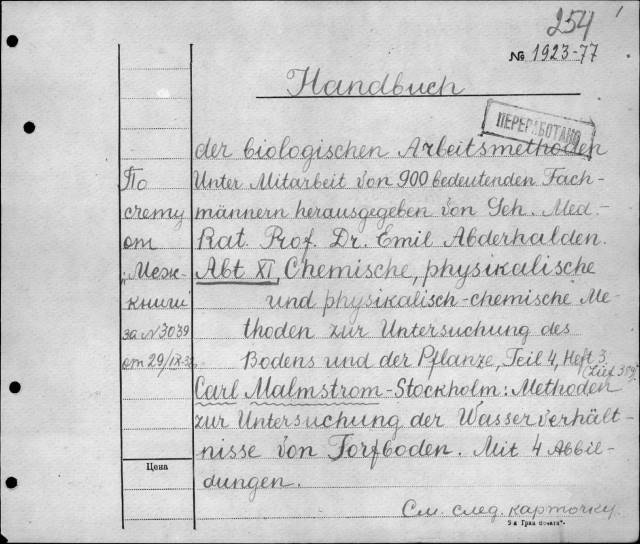 254
№ 1923-77
Handbuch
ПЕРЕРАБОТАНО
der biologischen Arbeitsmethoden
Unter Mitarbeit von 900 bedeutenden Fach-
männern herausgegeben von Geh. Med.-
Rat. Prof. Dr. Emil Abderhalden.
Abt XI, Chemische, physikalische
und physikalisch-chemische Me-
thoden zur Untersuchung des
Bodens und der Pflanze, Teil 4, Heft 3
Carl Malmstrom-Stockholm: Methoden
zur Untersuchung der Wasserverhält-
nisse von Torfboden. Mit 4 Abbil-
dungen.
См. след. карточку.
По
счету
от
"Меж-
книги"
за N 3039
от 29/IX-32
Цена